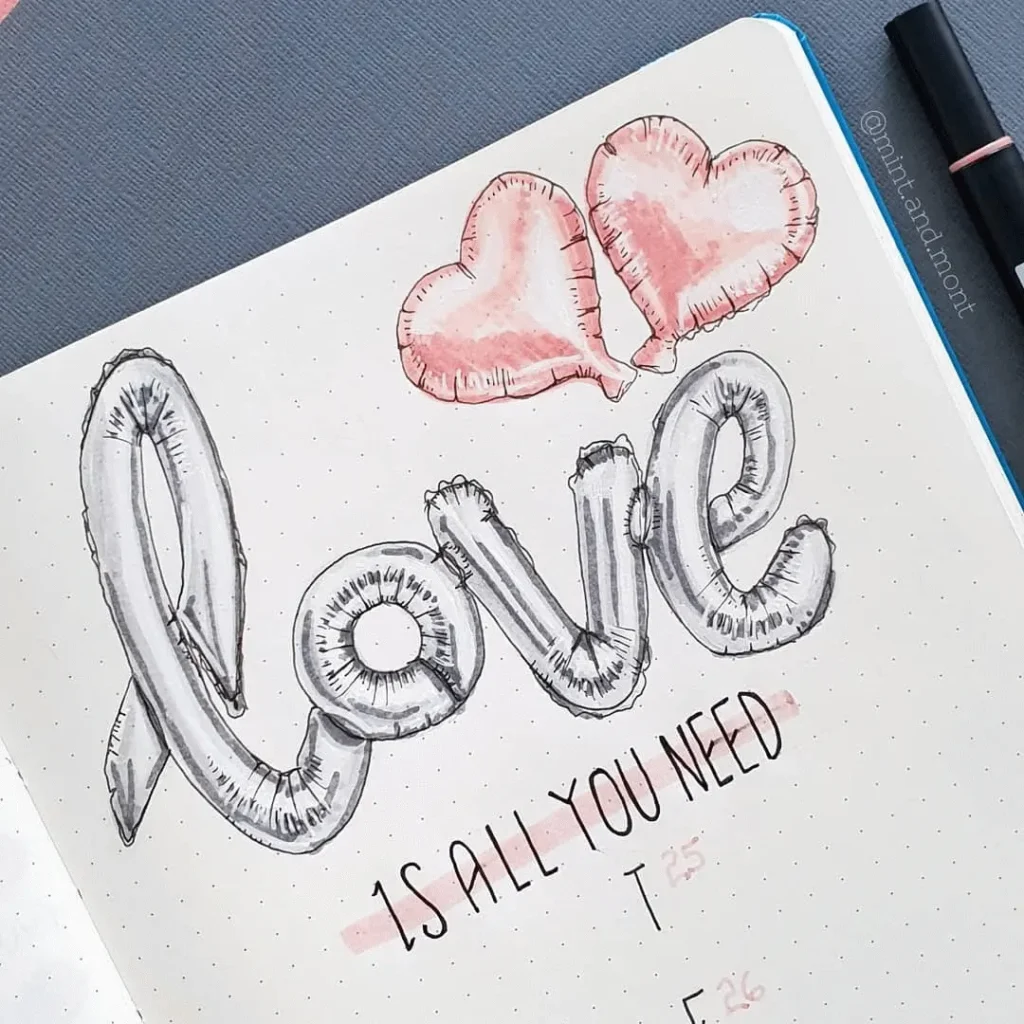 love
IS ALL YOU NEED
T 25
F 26
@mint.and.mont